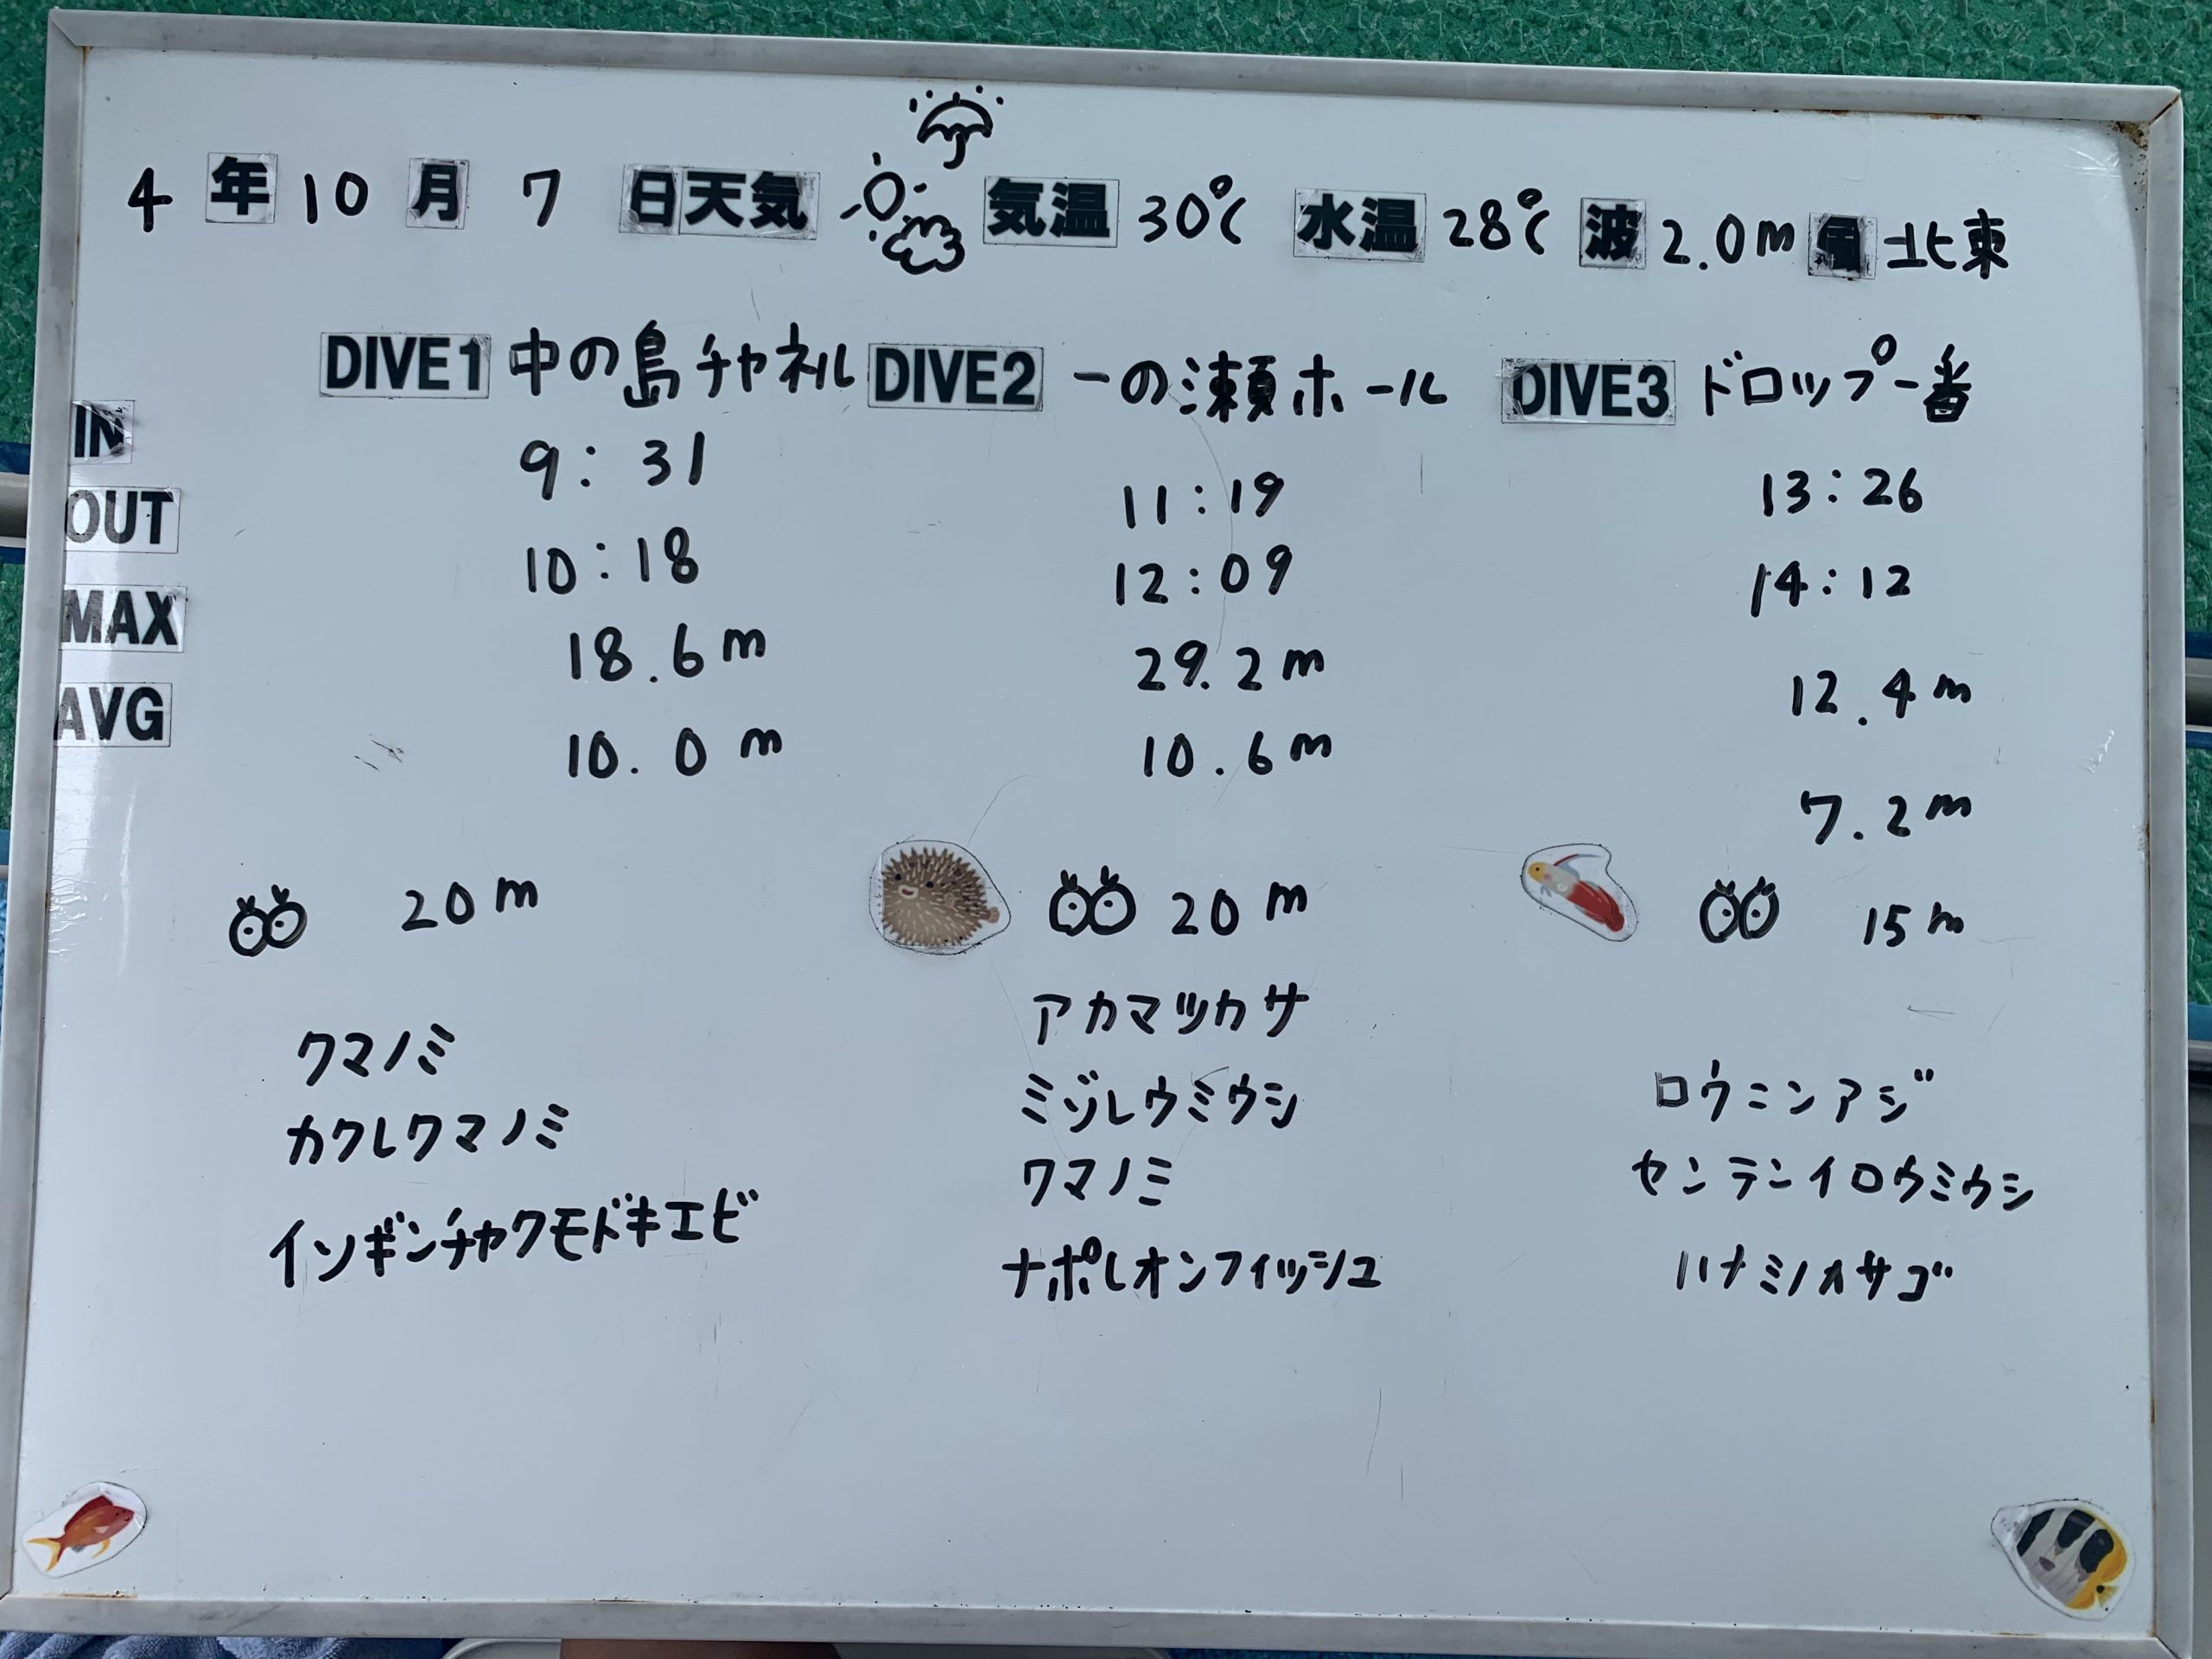 4 年 10 月 7 日 天気 気温 30℃ 水温 28℃ 波 2.0m 風 北東
DIVE1 中の島チャネル DIVE2 一の瀬ホール DIVE3 ドロップ一番
IN 9:31 11:19 13:26
OUT 10:18 12:09 14:12
MAX 18.6m 29.2m 12.4m
AVG 10.0m 10.6m 7.2m
20m 20m 15m
クマノミ
カクレクマノミ
イソギンチャクモドキエビ
アカマツカサ
ミゾレウミウシ
クマノミ
ナポレオンフィッシュ
ロウニンアジ
センテンイロウミウシ
ハナミノカサゴ